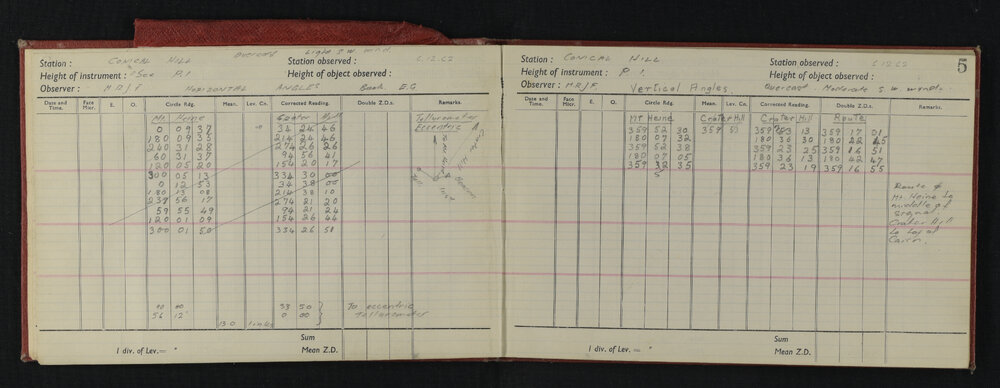 Station : CONICAL HILL Overcast Light S.W. Wind. Station observed : 6.12.62
Height of instrument : See P.1 Height of object observed :
Observer : MR/F HORIZONTAL ANGLES Book E.G.
Date and Time. Face Micr. E. O. Circle Rdg. Mean. Lev. Co. Corrected Reading. Double Z.D.s. Remarks.
Mt. Heine Crater Hill Tellurometer
0 09 37 34 24 46 Eccentric
180 09 35 214 24 46
240 31 28 274 26 26
60 31 37 94 56 41
120 05 20 154 20 17
300 05 13 334 30 00
0 12 53 34 38 00
180 13 08 214 38 10
239 56 17 274 21 20
59 55 49 94 21 24
120 01 09 154 26 44
300 01 50 334 26 51
00 00 33 50 To eccentric
56 12 0 00 Tellurometer
13.0 links
Sum
1 div. of Lev.= " Mean Z.D.
5
Station : CONICAL HILL Station observed : 6.12.62
Height of instrument : P 1. Height of object observed :
Observer : MR/F Vertical Angles. Overcast Moderate S.W. wind.
Date and Time. Face Micr. E. O. Circle Rdg. Mean. Lev. Co. Corrected Reading. Double Z.D.s. Remarks.
MT Heine Crater Hill Crater Hill Route
359 52 30 359 53 359 23 13 359 17 01
180 07 32 180 36 30 180 42 45
359 52 38 359 23 25 359 16 51
180 07 05 180 36 13 180 42 47
359 52 35 359 23 19 359 16 55
5
Route &
Mt Heine to
middle of
signal.
Crater Hill
to top of
Cairn.
Sum
1 div. of Lev.= " Mean Z.D.